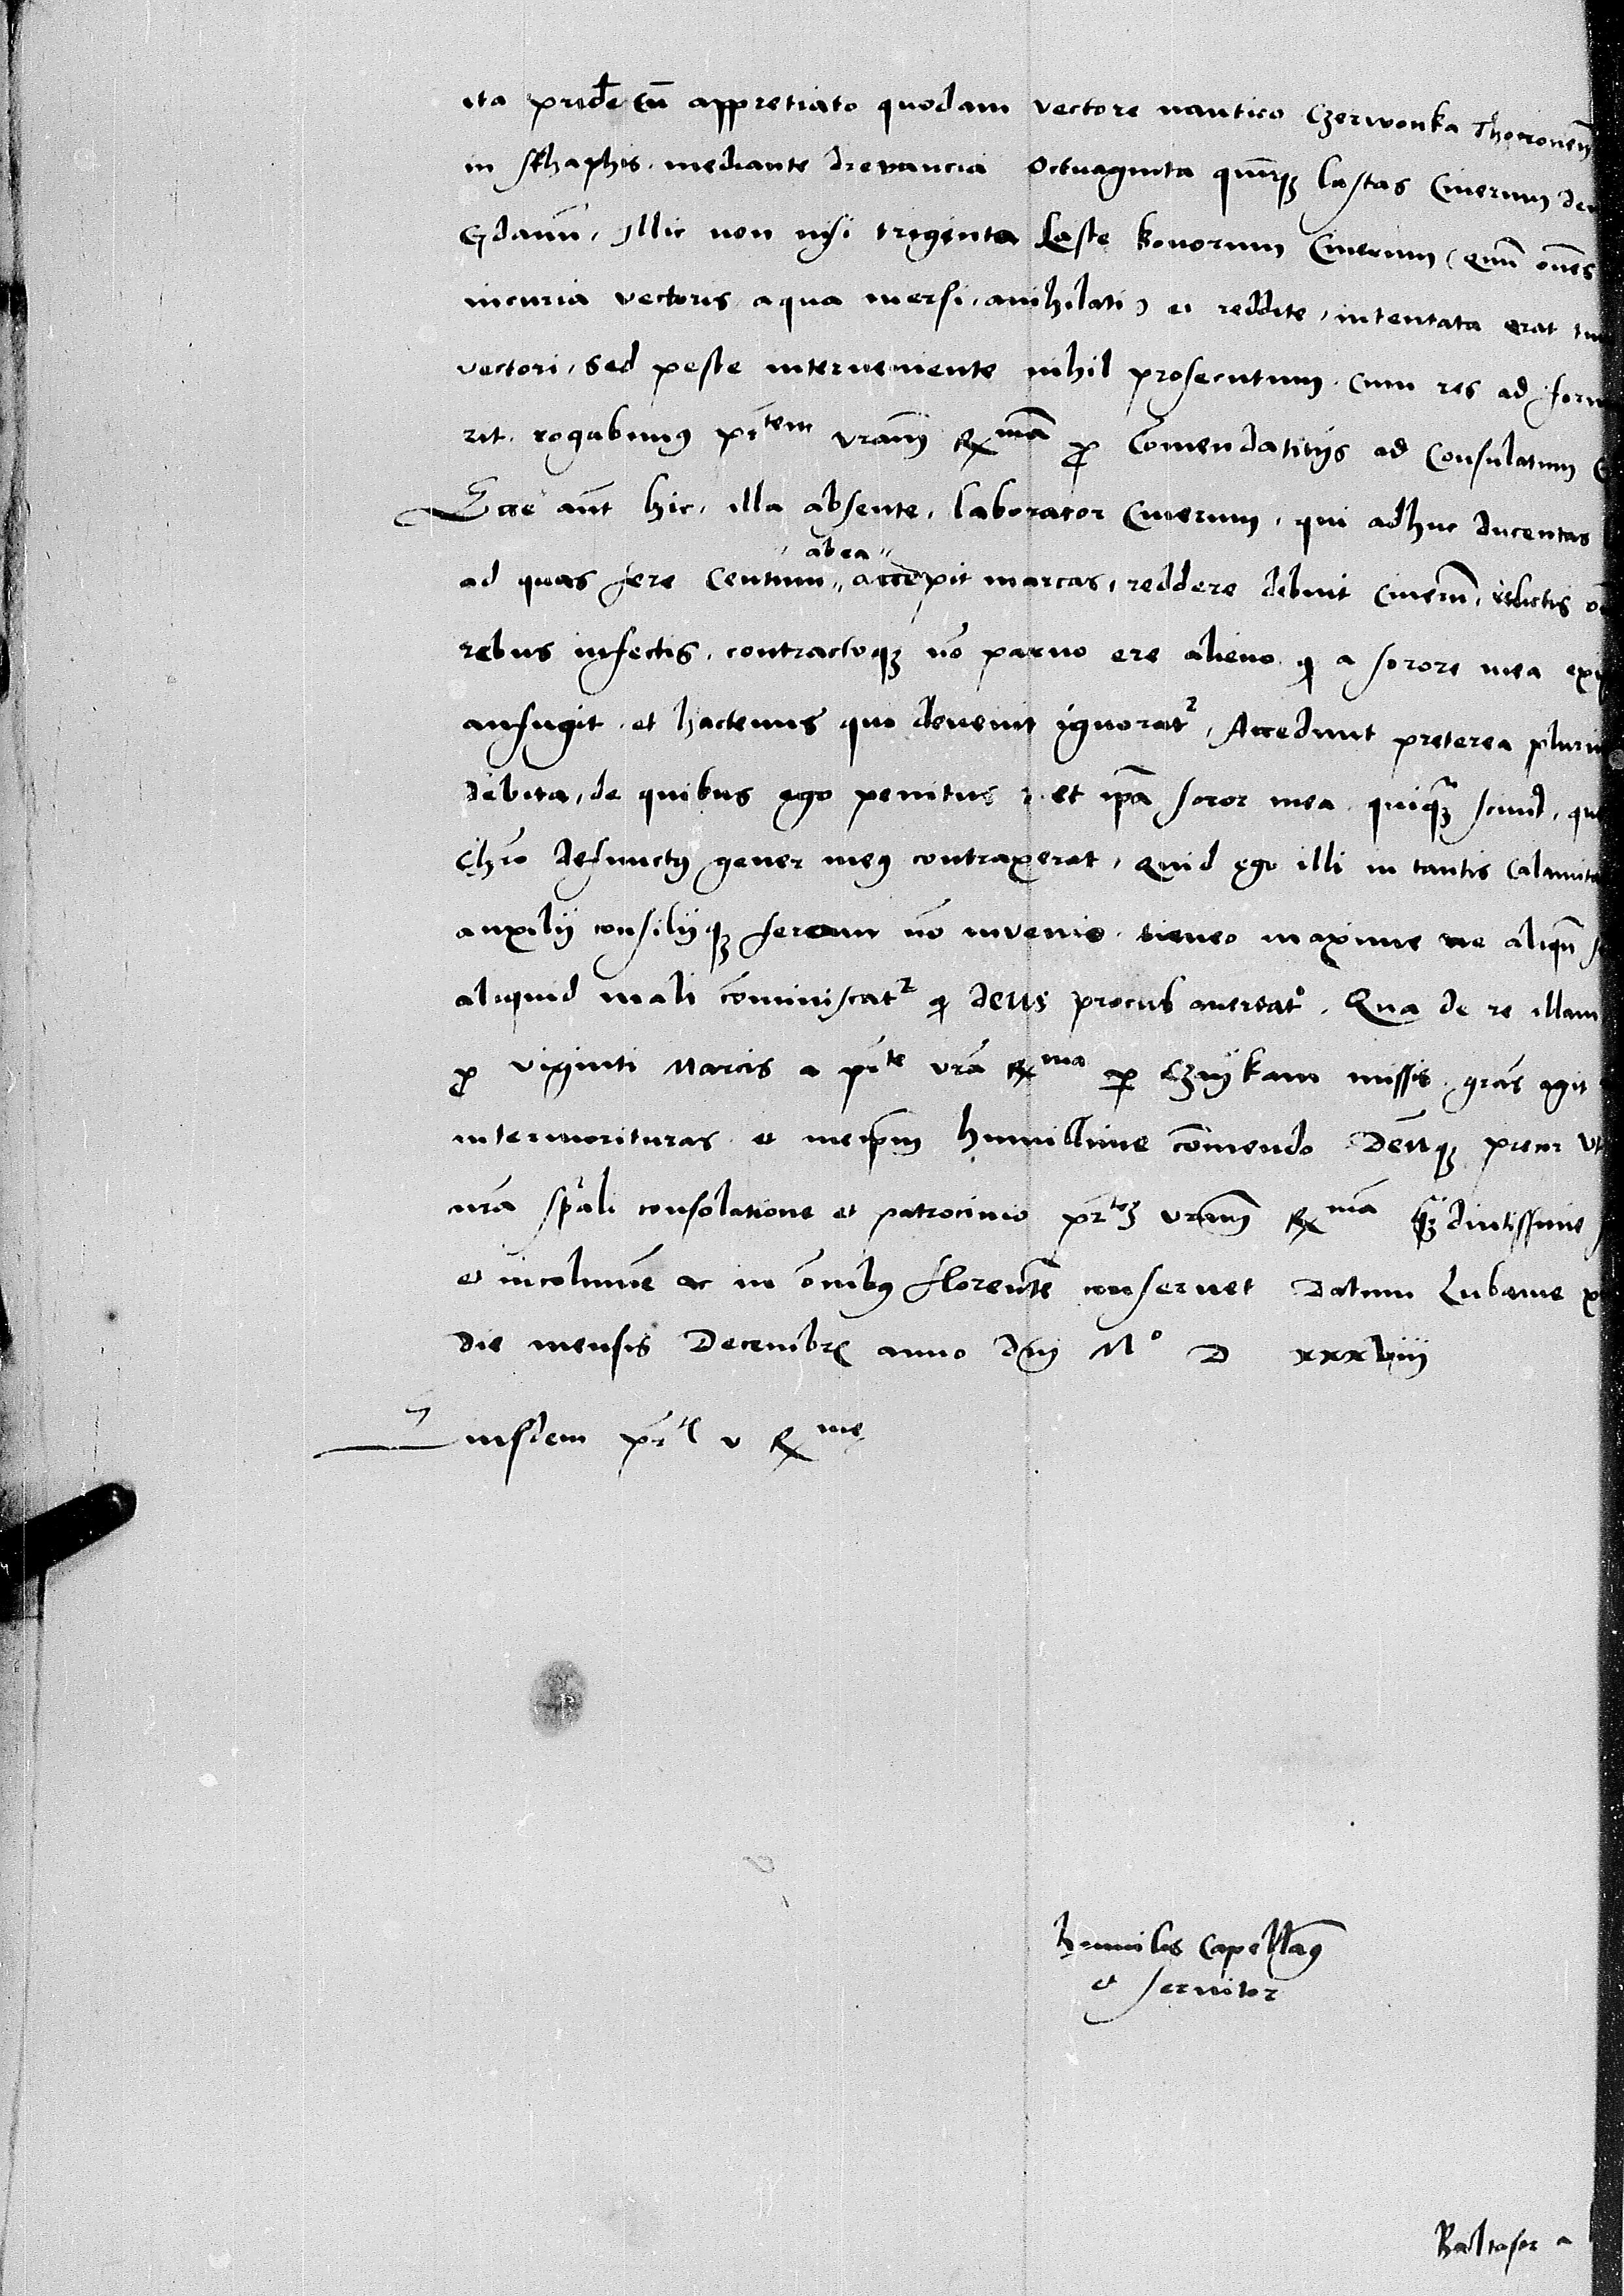 ita pride cū appretiato quodam vectore nautico Czerwonka Thoronen̄
in skhaphis mediante drevancia Octuaginta quīqȝ lastas Cinerum
Gdanū, Illic non nisi triginta Laste bonorum Cinerum (Quū om̄es
incuria vectoris aqua mersi, anihilati) ei reddite, intentata erat
vectori, sed peste interveniente nihil prosecutum. Cum res ad
rit. rogabimus pr̄tem vram̄ Rmam pro Com̄endatitijs ad Consulatum
Ecce aūt hic, illa absente, laborator Cinerum, qui adhuc ducentas
ad quas fere Centum ab ea accepit marcas, reddere debuit Cinerū, relictis
rebus infectis, contractoqȝ nō parvo ere alieno q a sorore mea
aufugit et hactenus quo devenit ignorat², Accedunt preterea
debita, de quibus ego penitus et ip̄a soror mea quiqȝ
Chr̄o defunctus gener meus contraxerat, Quid ego illi in tantis
auxilij consilijqȝ feram nō invenio timeo maxime ne
aliquid mali com̄iniscat² q deus procul avertat. Qua de re illam
pro viginti Marcis a pr̄te vr̄a Rma per Czuÿkam missis gr̄as agit
intermorituras et meip̄m humillime com̄endo Deūqȝ precor
nr̄a sp̄ali consolatione et patrocinio pr̄tē vram̄ Rmam qȝ diutissime
et incolumē ac in om̄ibus florentē conservet Datum Lubavie
die mensis Decembr̄ anno dnī Mº D xxxviii
Eiusdem pr̄t v Rme
humilis Capellan̄us
et servitor
Baltasar a